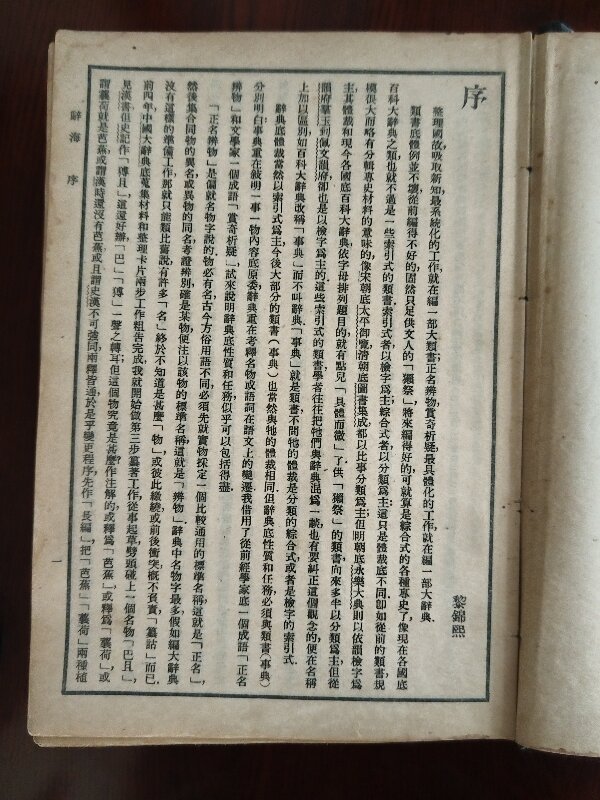 序
黎錦熙
整理國故，吸取新知，最系統化的工作，就在編一部大類書；正名辨物，賞奇析疑，最具體化的工作，就在編一部大辭典．
類書底體例並不壞，從前編得不好的，固然只足供文人的「獺祭」，將來編得好的，可就算是綜合式的各種專史了，像現在各國底
百科大辭典之類，也就不過是一些索引式的類書．索引式者，以檢字爲主，綜合式者，以分類爲主，這只是體裁底不同．卽如從前的類書，規
模很大而略有分輯專史材料的意味的，像宋朝底太平御覽，清朝底圖書集成，都以比事分類爲主，但明朝底永樂大典，則以依韻檢字爲
主，其體裁和現今各國底百科大辭典依字母排列題目的，就有點兒「具體而微」了．供「獺祭」的類書，而來多半以分類爲主，但從
韻府羣玉到佩文韻府，卻也是以檢字爲主的．這些索引式的類書，學者往往把牠們與辭典混爲一談，也有要糾正這個觀念的，便在名稱
上加以區別，如百科大辭典改稱「事典」而不叫辭典．「事典」就是類書，不問牠的體裁是分類的綜合式，或者是檢字的索引式．
辭典底體裁，當然以索引式爲主，今後大部分的類書（事典）也當然與牠的體裁相同，但辭典底性質和任務，必須與類書（事典）
分別明白：事典重在敍明一事一物內容底原委，辭典重在考釋名物或語詞在語文上的變遷．我借用了從前經學家底一個成語「正名
辨物」和文學家一個成語「賞奇析疑」，試來說明辭典底性質和任務，似乎可以包括得盡．
「正名辨物」是偏就名物字說的．物必有名，古今方俗用語不同，必須先就實物採定一個比較通用的標準名稱，這就是「正名」，
然後集合同物的異名或異物的同名，考證辨別，確是某物，便注以該物的標準名稱，這就是「辨物」．辭典中名物字最多，假如編大辭典
沒有這樣的準備工作，那就只能類比舊說，有許多「名」終於不知道是甚麼「物」，或彼此繳繞，或前後衝突，概不負責，「纂詁」而已．
前四年，中國大辭典底蒐集材料和整理卡片兩步工作粗告完成，我就開始做第三步纂著工作，從事起草，劈頭碰上一個名物「巴且」，
見漢書，但史記作「猼且」，這還好辦，「巴」「猼」一聲之轉耳，但這個物究竟是甚麼？作注解的，或釋爲「芭蕉」，或釋爲「蘘荷」，或
謂蘘荷就是芭蕉，或謂漢時還沒有芭蕉，或且謂史漢不可強同，兩釋皆通．於是乎變更程序，先作「長編」，把「芭蕉」「蘘荷」兩種植
辭海 序
一